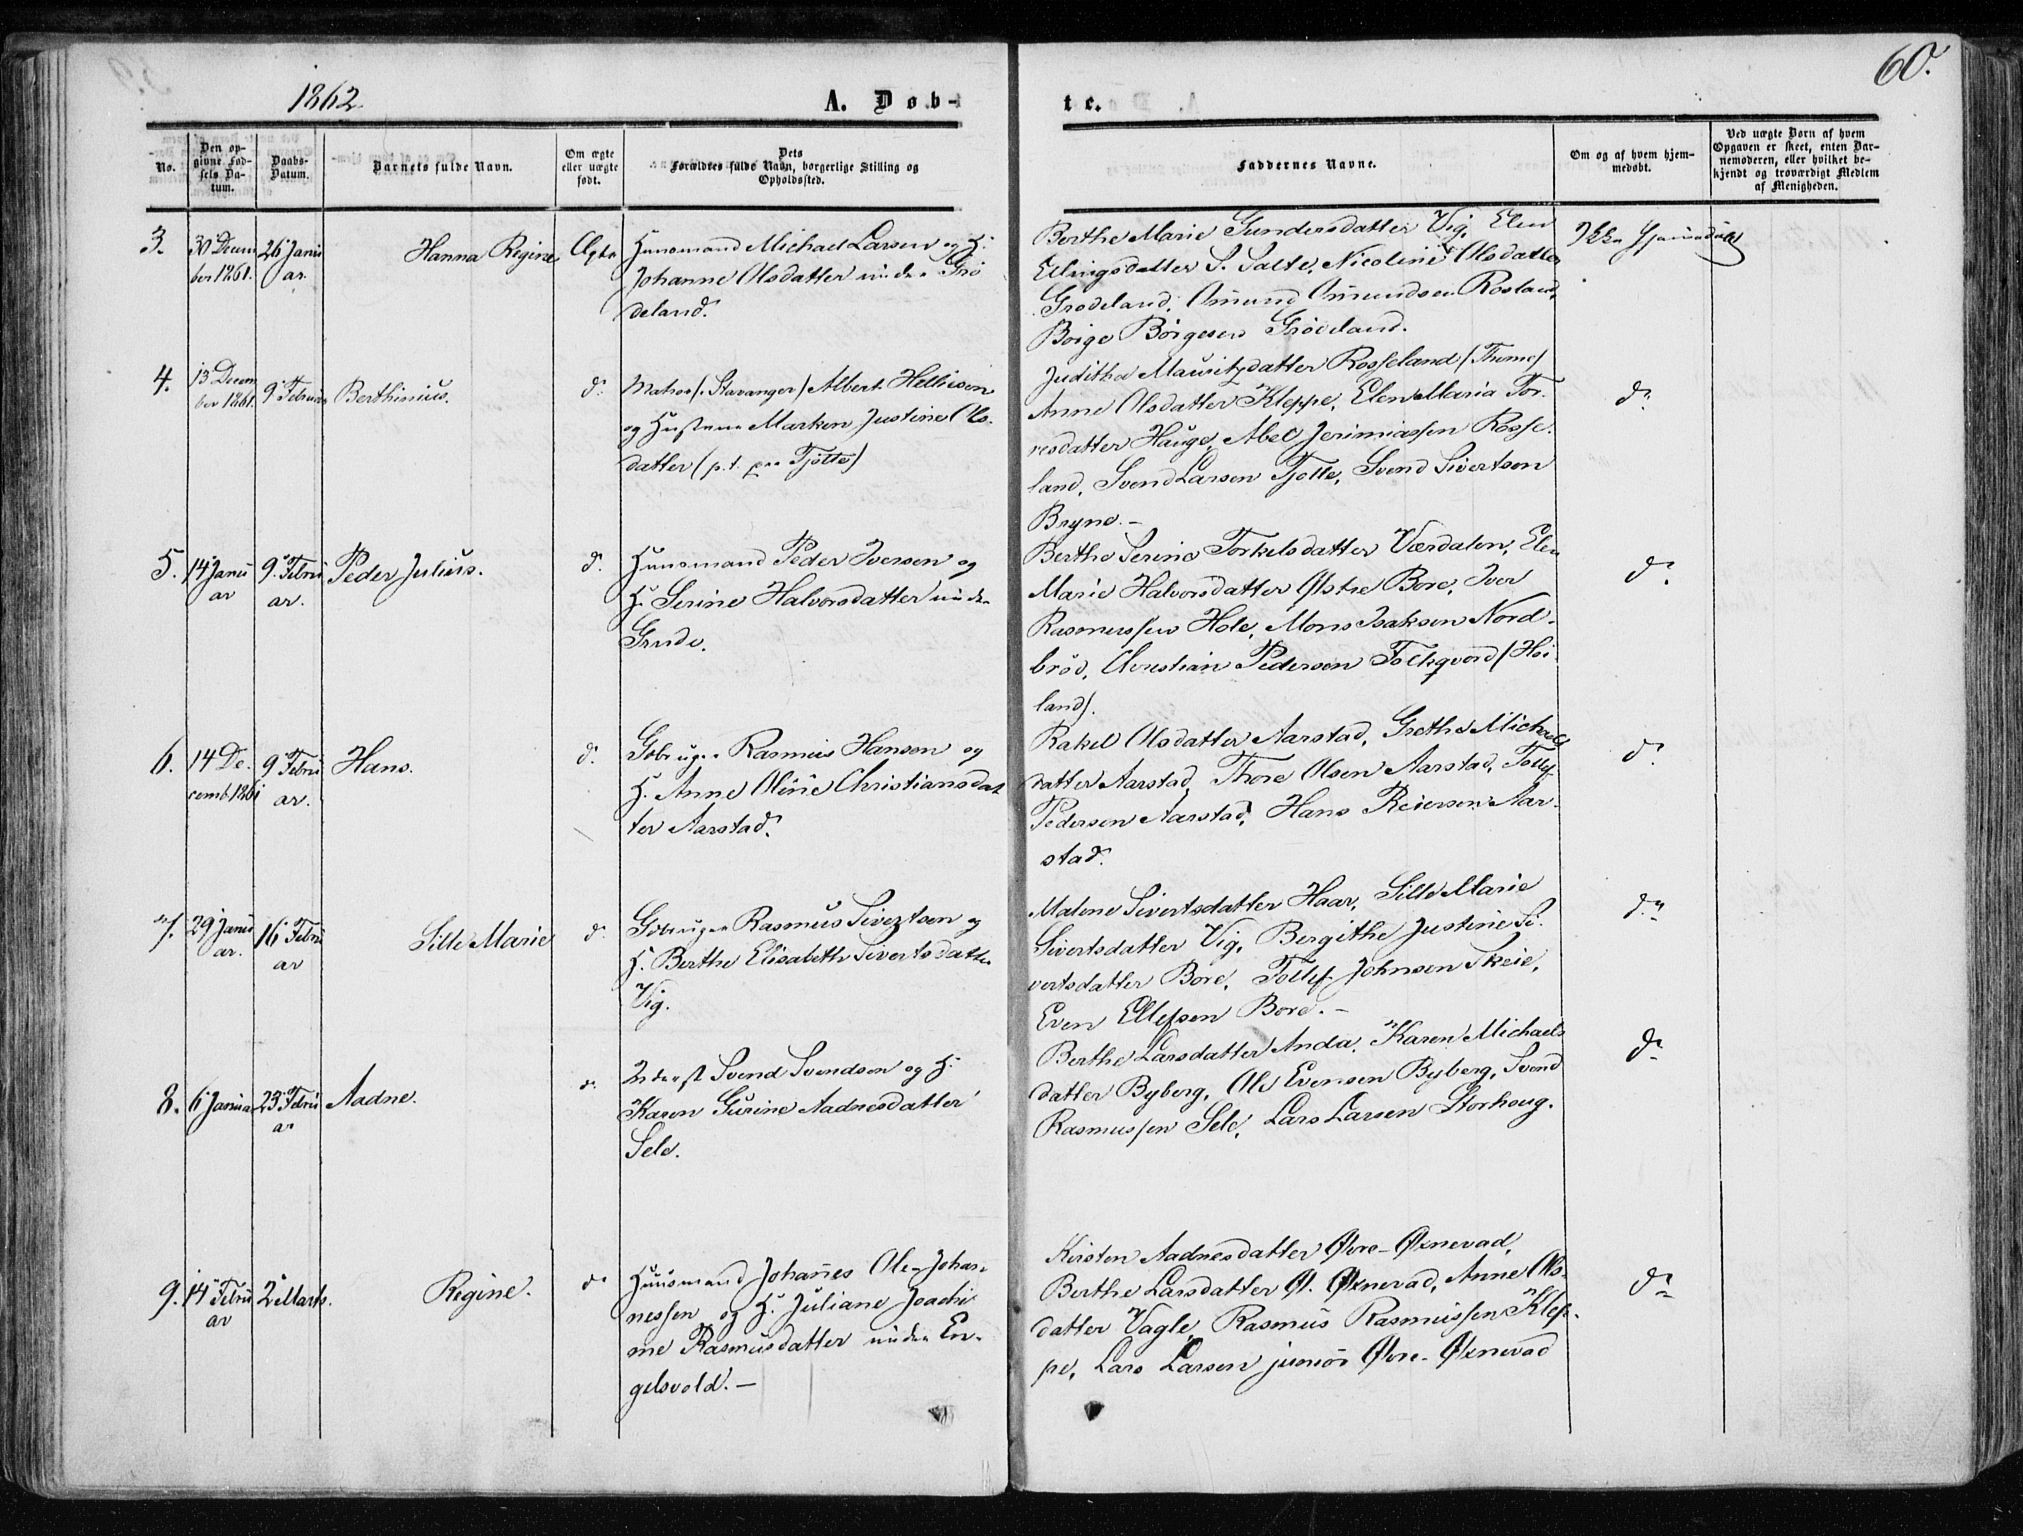 60.
1862.
A. Døb-
te.
No.
Den op-
givne Fød-
sels Da-
tum.
Daabs-
Datum.
Barnets fulde Navn.
Om ægte
eller uægte
født.
Dets
Forældres fulde Navn, borgerlige Stilling og
Opholdssted.
Faddernes Navne.
Om og af hvem hjem-
medøbt.
Ved uægte Børn af hvem
Opgaven er skeet, enten Bar-
nemoderen, eller hvilket be-
kjendt og troværdigt Medlem
af Menigheden.
3.
30 Decem
ber 1861.
26 Janu
ar.
Hanna Regine
Ægte
Huusmand Michael Larsen og H.
Johanne Olsdatter under Grø
deland.
Berthe Marie Gundersdatter Vig, Elen
Ellingsdatter S. Salte, Nicoline Olsdatter
Grødeland, Omund Omundsen Rosland,
Børge Børgesen Grødeland.
Ikke hjemmedøbt
4.
13 Decem
ber 1861.
9 Februar
Berthinius.
do
Matros (Stavanger) Albert Helliesen
og Hustrue Marken Justine Ols-
datter (p.t. paa Tjøtte)
Juditha Mauritzdatter Rosseland (Thime)
Anne Olsdatter Kleppe, Elen Maria Tor-
resdatter Hauge, Abel Jerimiassen Rosse-
land, Svend Larsen Tjøtte, Svend Sivertsen
Bryne.-
do
5.
14 Janu
ar
9 Febru
ar.
Peder Julius.
do
Huusmand Peder Iversen og
H. Serine Halvorsdatter under
Grude.
Berthe Serine Torkelsdatter Værdalen, Elen
Marie Halvorsdatter Østre Bore, Iver
Rasmussen Hole, Mons Isaksen Nord-
brød, Christian Pedersen Folkqvord (Høi-
land).
do
6.
14 De-
cemb. 1861
9 Febru
ar.
Hans.
do
Gbruger Rasmus Hansen og
H. Anne Oline Christiansdat
ter Aarstad.
Rakel Olsdatter Aarstad, Grethe Michaels
datter Aarstad, Thore Olsen Aarstad, Tollef
Pedersen Aarstad, Hans Reiersen Aar-
stad.
do
7.
29 Janu
ar.
16 Febru
ar
Sille Marie
do
Gbruger Rasmus Sivertsen og
H. Berthe Elisabeth Sivertsdatter
Vig.
Malene Sivertsdatter Haar, Sille Marie
Sivertsdatter Vig, Bergithe Justine Si-
vertsdatter Bore, Tollef Johnsen Skeie,
Even Ellefsen Bore.-
do
8.
6 Januar
23 Febru
ar
Aadne.
do
Inderst Svend Svendsen og H.
Karen Gurine Aadnesdatter
Sele.
Berthe Larsdatter Anda, Karen Michaels
datter Byberg, Ole Evensen Byberg, Svend
Rasmussen Sele, Lars Larsen Storhoug.
do
9.
14 Febru
ar
2 Marts.
Regine.
do
Huusmand Johanes Ole Johan-
nessen og H. Juliane Joachi
me Rasmusdatter under En-
gelsvold.-
Kirsten Aadnesdatter Øvre-Øxnevad,
Berthe Larsdatter Ø. Øxnevad, Anne Ols-
datter Vagle, Rasmus Rasmussen Klep-
pe, Lars Larsen junior Øvre-Øxnevad
do